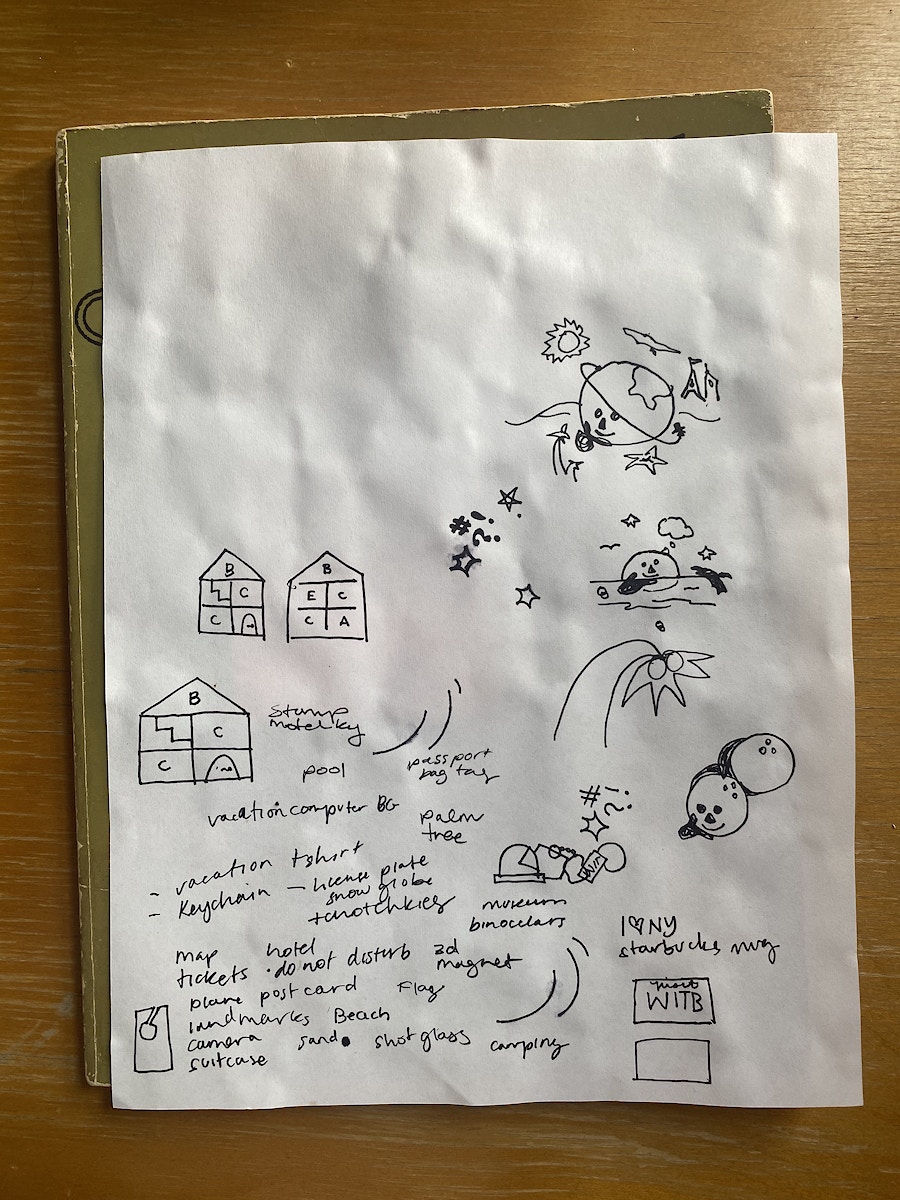 B
C
C
B
E C
C A
#!?
B
C
C
stamp
motel ky
pool
passport
bag tag
vacation computer BG
palm
tree
#!?
- vacation tshirt
- Keychain - license plate
snow globe
tchotchkies
museum
binoculars
I♡NY
starbucks mug
map hotel
tickets · do not disturb 3d
magnet
plane post card Flag
landmarks Beach
camera sand shot glass camping
suitcase
WITB